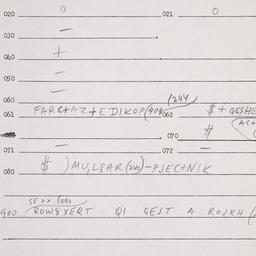 020 0 021 0
030 —
040 +
050 —
060 — (244
061 FARC+AZ+EDIKOP(404 062 $+GESHE
070 # (AC+
071 — 072 —
080 $ ) MU,L8AR(240)-PJECTNIK
SEXX (492
900 ROW8XERT QI GEJT A ROJKH (